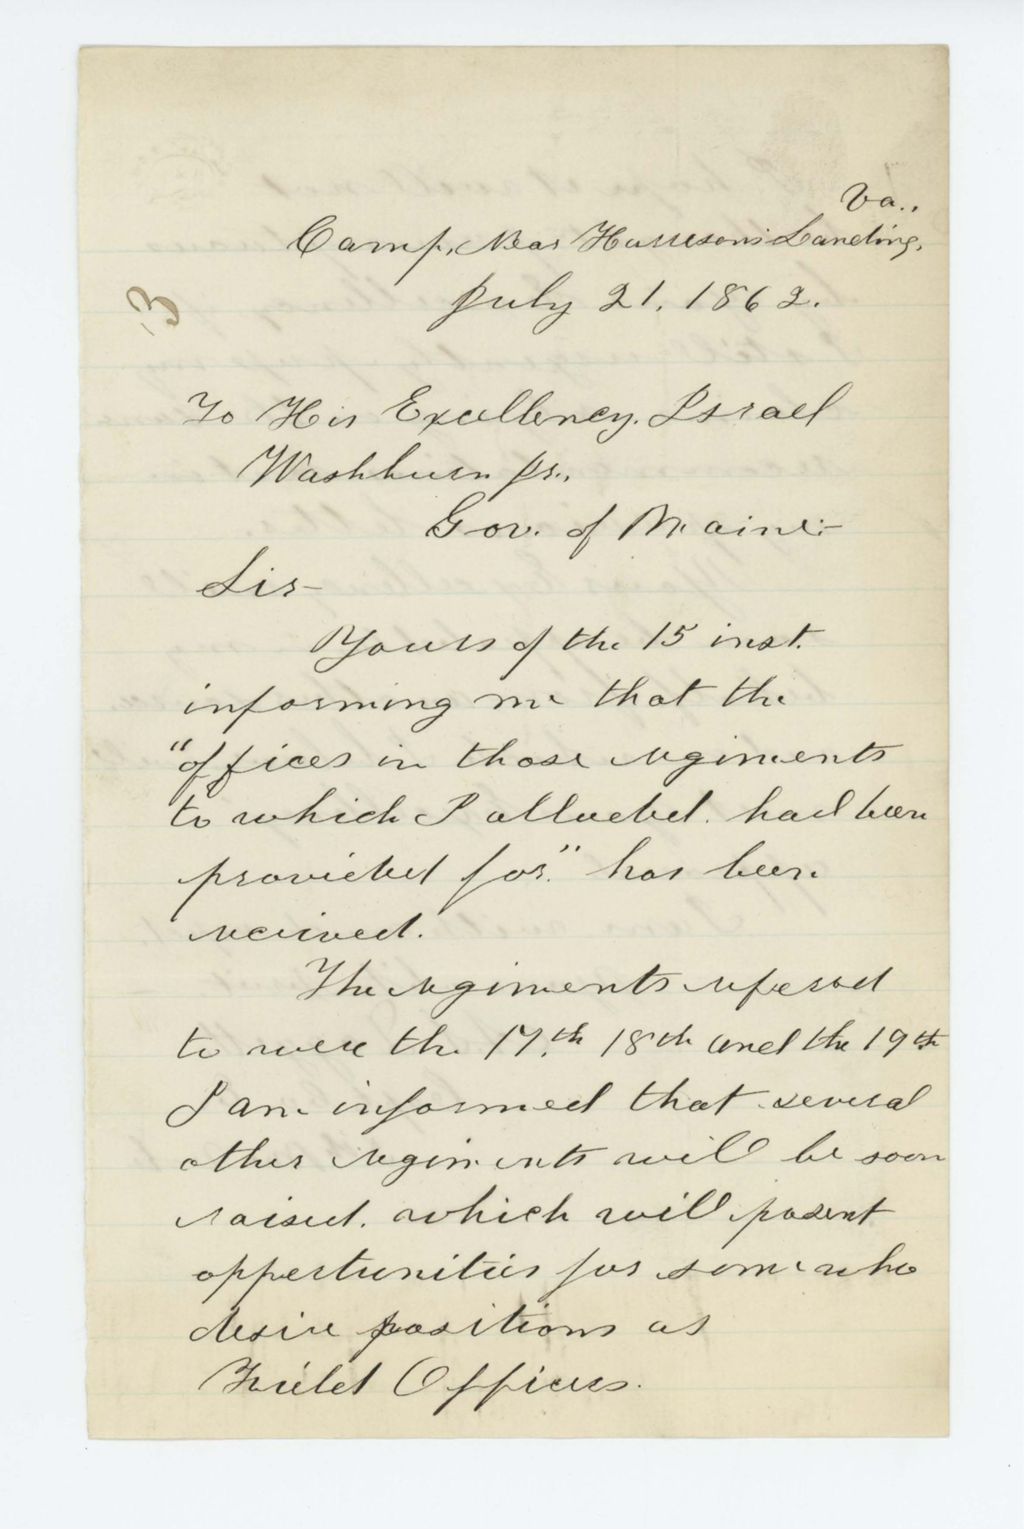 Va.,
Camp, Near Harrison's Landing,
July 21, 1862.
3
To His Excellency, Israel
Washburn Jr.,
Gov. of Maine:-
Sir-
Yours of the 15 inst.
informing me that the
"offices in those regiments
to which I alluded, had been
provided for," has been
received.
The regiments refered
to were the 17,th 18th and the 19th
I am informed that several
other regiments will be soon
raised, which will present
oppertunities for some who
desire positions as
Field Officers.